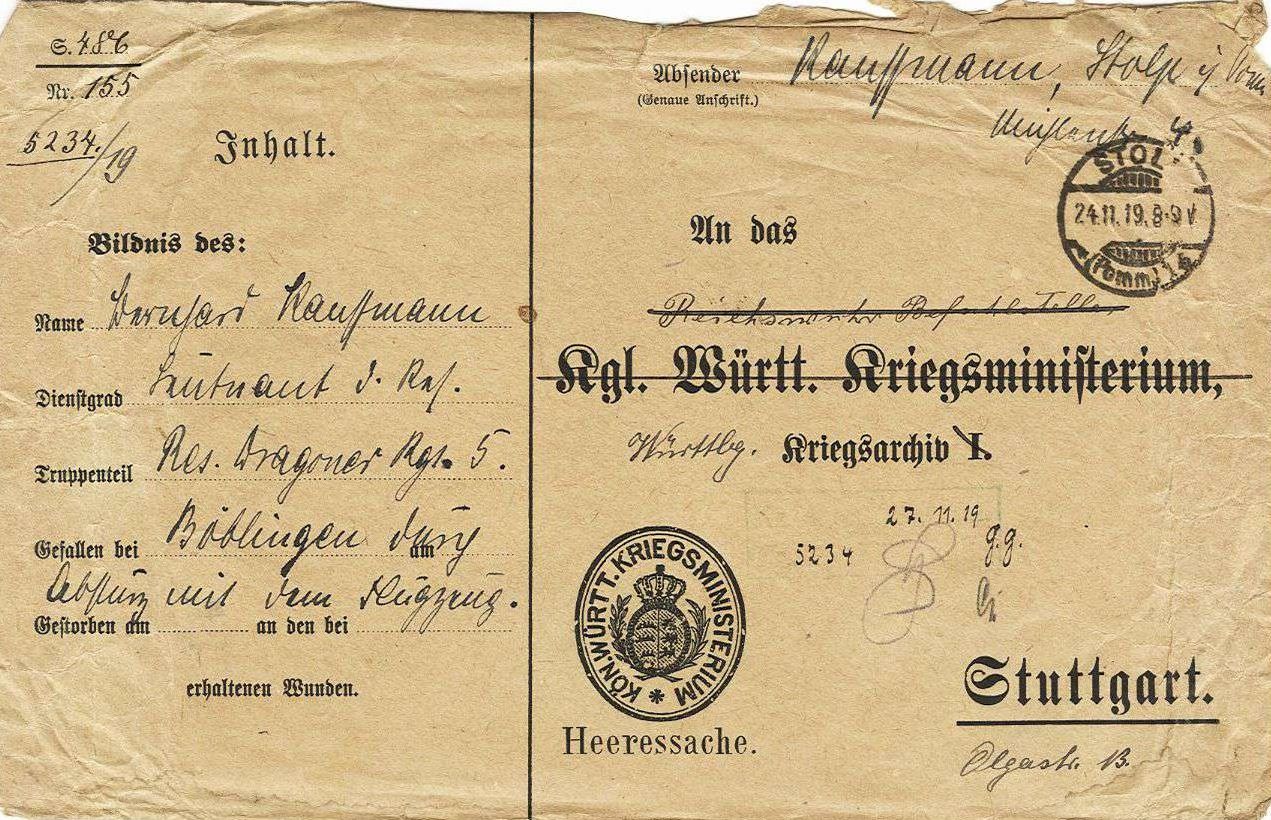 S. 486
Nr. 155
5234/19
Inhalt.
Bildnis des:
Name Bernhard Kauffmann
Dienstgrad Leutnant d. Res.
Truppenteil Res. Dragoner Rgt. 5.
Gefallen bei Böblingen am durch
Absturz mit dem Flugzeug.
Gestorben am an den bei
erhaltenen Wunden.
Absender Kauffmann, Stolp i/ Pom
(Genaue Anschrift.)
4
STOLP
24.11.19.8-9V
(Pomm.) 1 b
An das
Reichswehr Befehlsstelle
Kgl. Württ. Kriegsministerium,
Württbg. Kriegsarchiv I.
27. 11. 19
5234 g.g.
KÖN. WÜRTT. KRIEGSMINISTERIUM *
Heeressache.
Stuttgart.
Olgastr. 13.